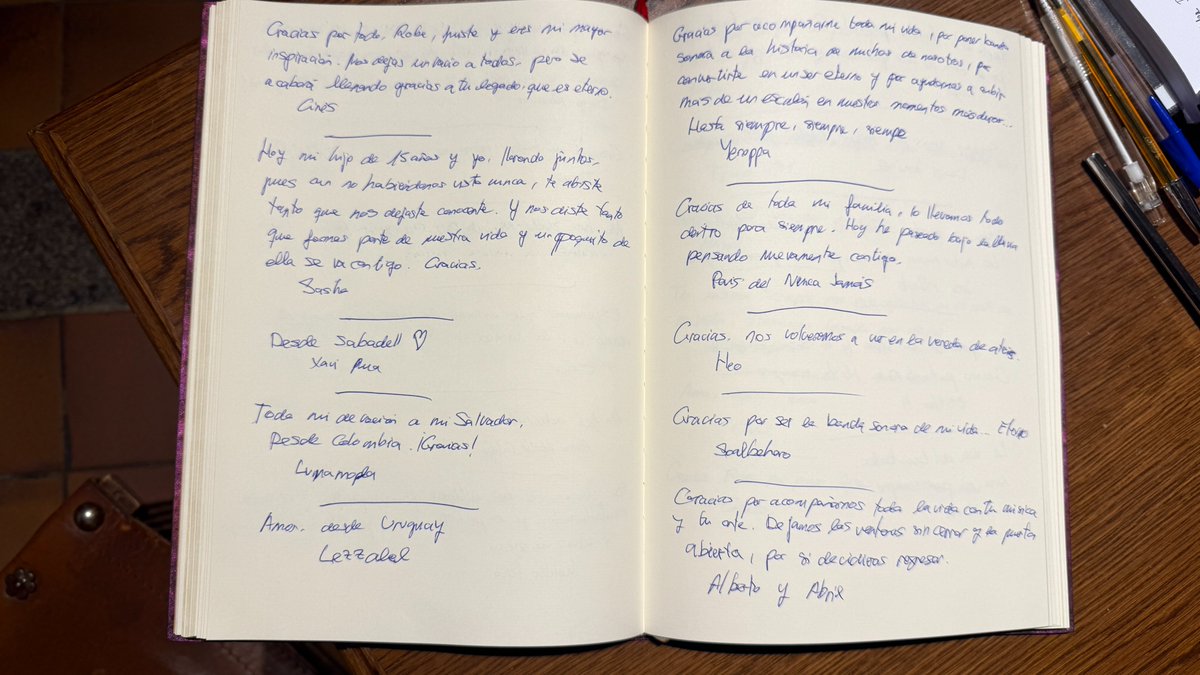 Gracias por todo, Robe, fuiste y eres mi mayor
inspiración. Nos dejas un vacío a todas, pero se
acabará llenando gracias a tu legado, que es eterno.
Cires
Hoy mi hijo de 15 años y yo, llorando juntos,
pues aun no habiéndonos visto nunca, te abriste
tanto que nos dejaste conocerte. Y nos diste tanto
que formas parte de nuestra vida y un poquito de
ella se va contigo. Gracias.
Sasha
Desde Sabadell ♡
Xavi
Toda mi devoción a mi Salvador.
Desde Colombia. ¡Gracias!
Lunamada
Amor, desde Uruguay
Lezzabel
Gracias por acompañarme toda mi vida, por poner banda
sonora a la historia de muchos de nosotros, por
convertirte en un ser eterno y por ayudarnos a subir
más de un escalón en nuestros momentos más duros...
Hasta siempre, siempre, siempre
Yeroppa
Gracias de toda mi familia, lo llevamos todo
dentro para siempre. Hoy he paseado bajo la lluvia
pensando nuevamente contigo.
País del Nunca Jamás
Gracias. nos volveremos a ver en la vereda de atrás.
Heo
Gracias por ser la banda sonora de mi vida... Eterno
Soalbehero
Gracias por acompañarnos toda la vida con tu música
y tu arte. Dejamos las ventanas sin cerrar y la puerta
abierta, por si decidieras regresar.
Alberto y Abril